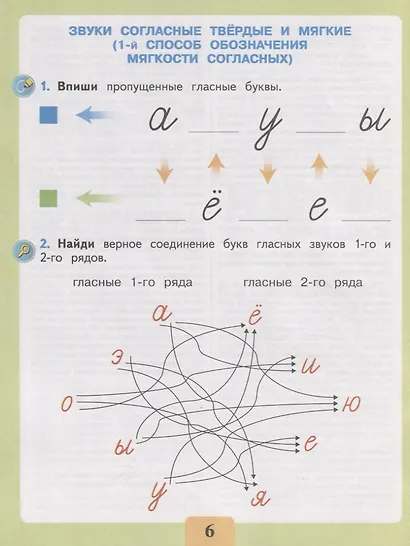 ЗВУКИ СОГЛАСНЫЕ ТВЁРДЫЕ И МЯГКИЕ
(1-й СПОСОБ ОБОЗНАЧЕНИЯ
МЯГКОСТИ СОГЛАСНЫХ)
1. Впиши пропущенные гласные буквы.
а ___ у ___ ы
___ ё ___ е ___
2. Найди верное соединение букв гласных звуков 1-го и
2-го рядов.
гласные 1-го ряда гласные 2-го ряда
а ё
э и
о ю
ы е
у я
6